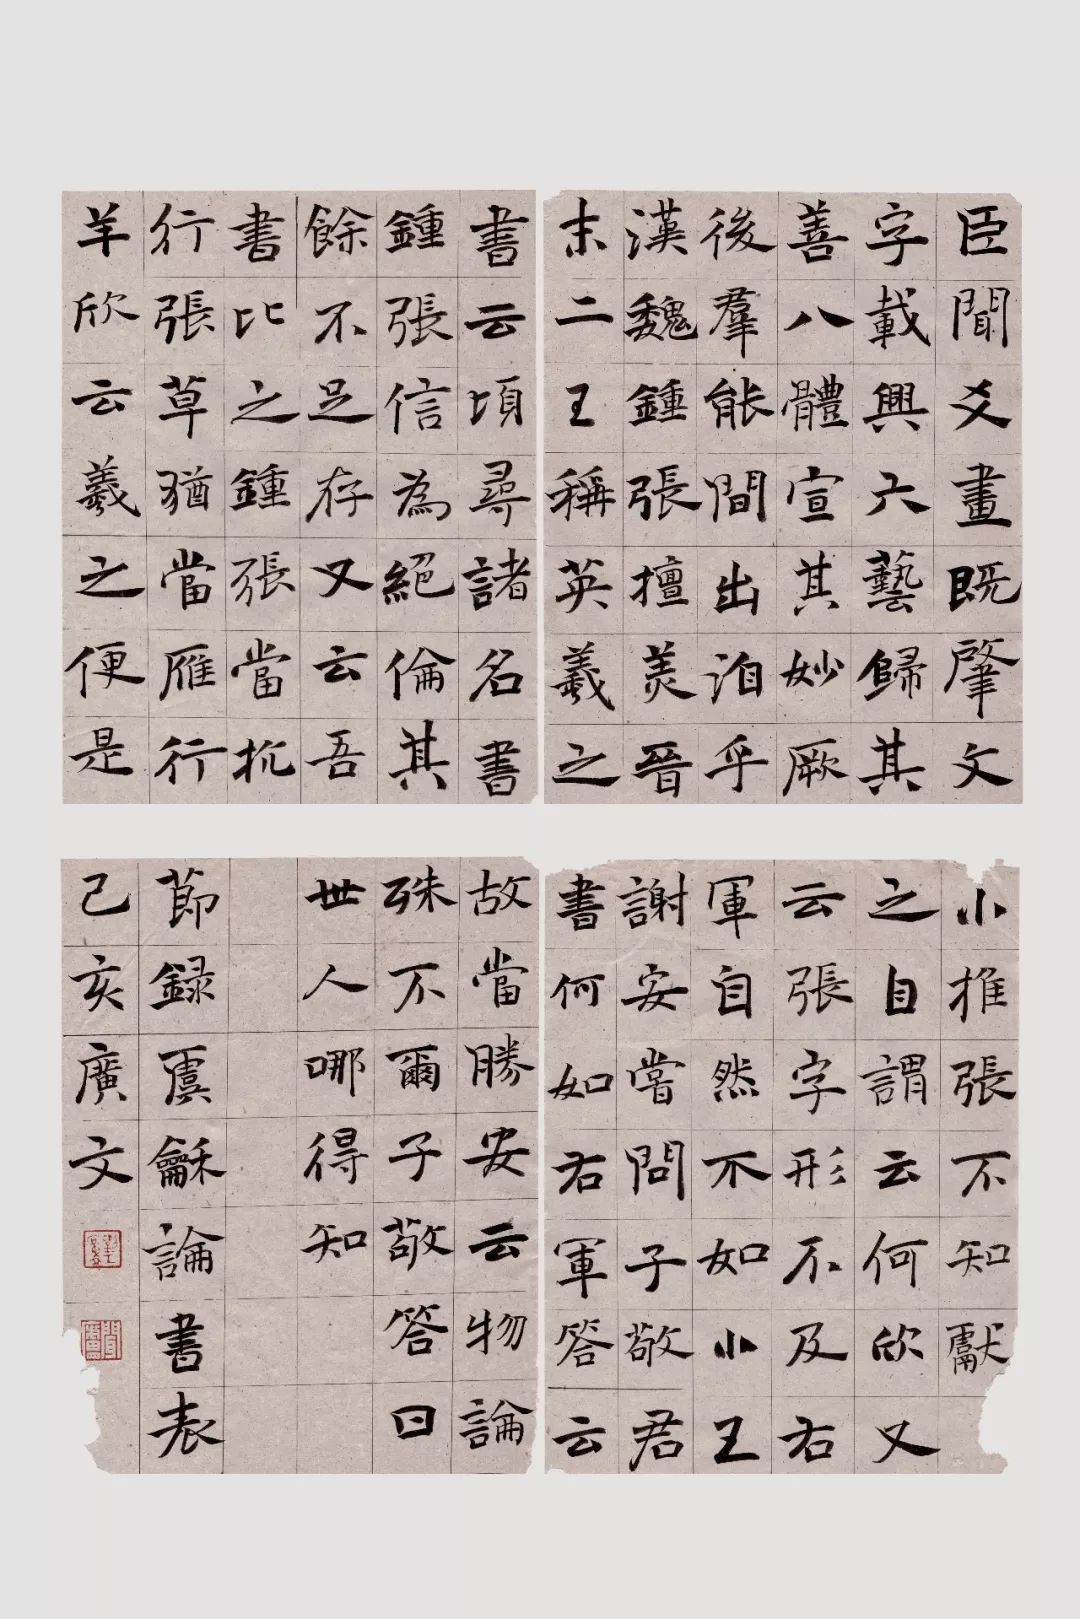 臣聞爻畫既肇文
字載興六藝歸其
善八體宣其妙厥
後羣能間出洎乎
漢魏鍾張擅美晉
末二王稱英羲之
書云頃尋諸名書
鍾張信為絕倫其
餘不足存又云吾
書比之鍾張當抗
行張草猶當雁行
羊欣云羲之便是
小推張不知獻
之自謂云何欣又
云張字形不及右
軍自然不如小王
謝安嘗問子敬君
書何如右軍答云
故當勝安云物論
殊不爾子敬答曰
世人哪得知
節録虞龢論書表
己亥廣文